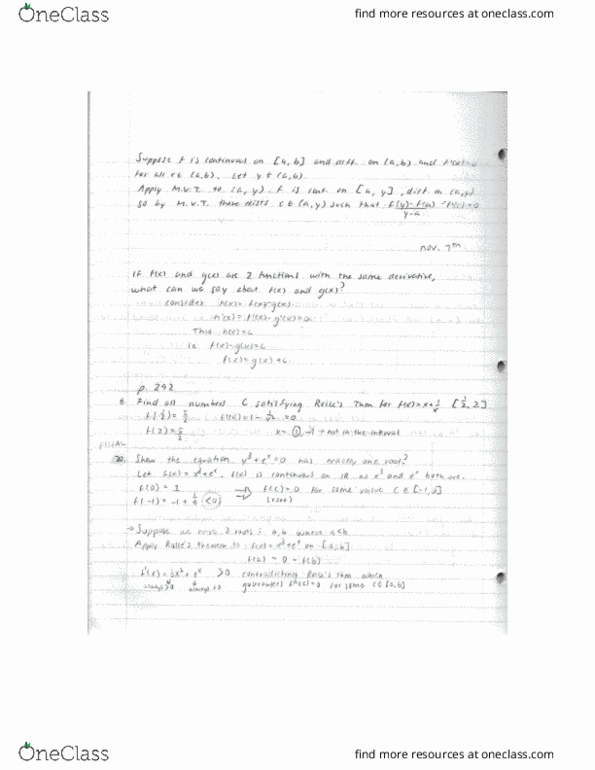 OneClass
find more resources at oneclass.com
Suppose f is continuous on [a,b] and diff. on (a,b) and f'(x)=0
for all x ∈ (a,b). Let y ∈ (a,b).
Apply M.V.T. to (a,y). f is cont. on [a,y], diff. on (a,y)
so by M.V.T. there exists c ∈ (a,y) such that f(y)-f(a)/y-a = f'(c)=0
Nov. 7th
If f(x) and g(x) are 2 functions with the same derivative,
what can we say about f(x) and g(x)?
consider h(x)= f(x)-g(x)
h'(x)= f'(x)-g'(x)=0
Thus h(x)=c
is f(x)-g(x)=c
f(x)=g(x)+c
p. 292
6. Find all numbers C satisfying Rolle's Thm for f(x)=x+1/x [1/2, 2]
f(1/2)= 5/2 f'(x)=1- 1/x² =0
f(2)= 5/2 x= 1, -1 → not in the interval
FINAL
20. Show the equation y³+eˣ=0 has exactly one root?
Let f(x)= x³+eˣ. f(x) is continuous on ℝ as x³ and eˣ both are.
f(0)= 1 ⇒ f(c)=0 for some value C ∈ [-1,0]
f(-1)= -1+ 1/e <0 (root)
→ Suppose we have 2 roots: a,b where a<b
Apply Rolle's theorem to f(x)=x³+eˣ on [a,b]
f(a) = 0 = f(b)
f'(x)=3x²+eˣ >0 contradicting Rolle's thm which
always ≥0 always >0 guarantees f'(c)=0 for some c ∈ [a,b]
OneClass
find more resources at oneclass.com